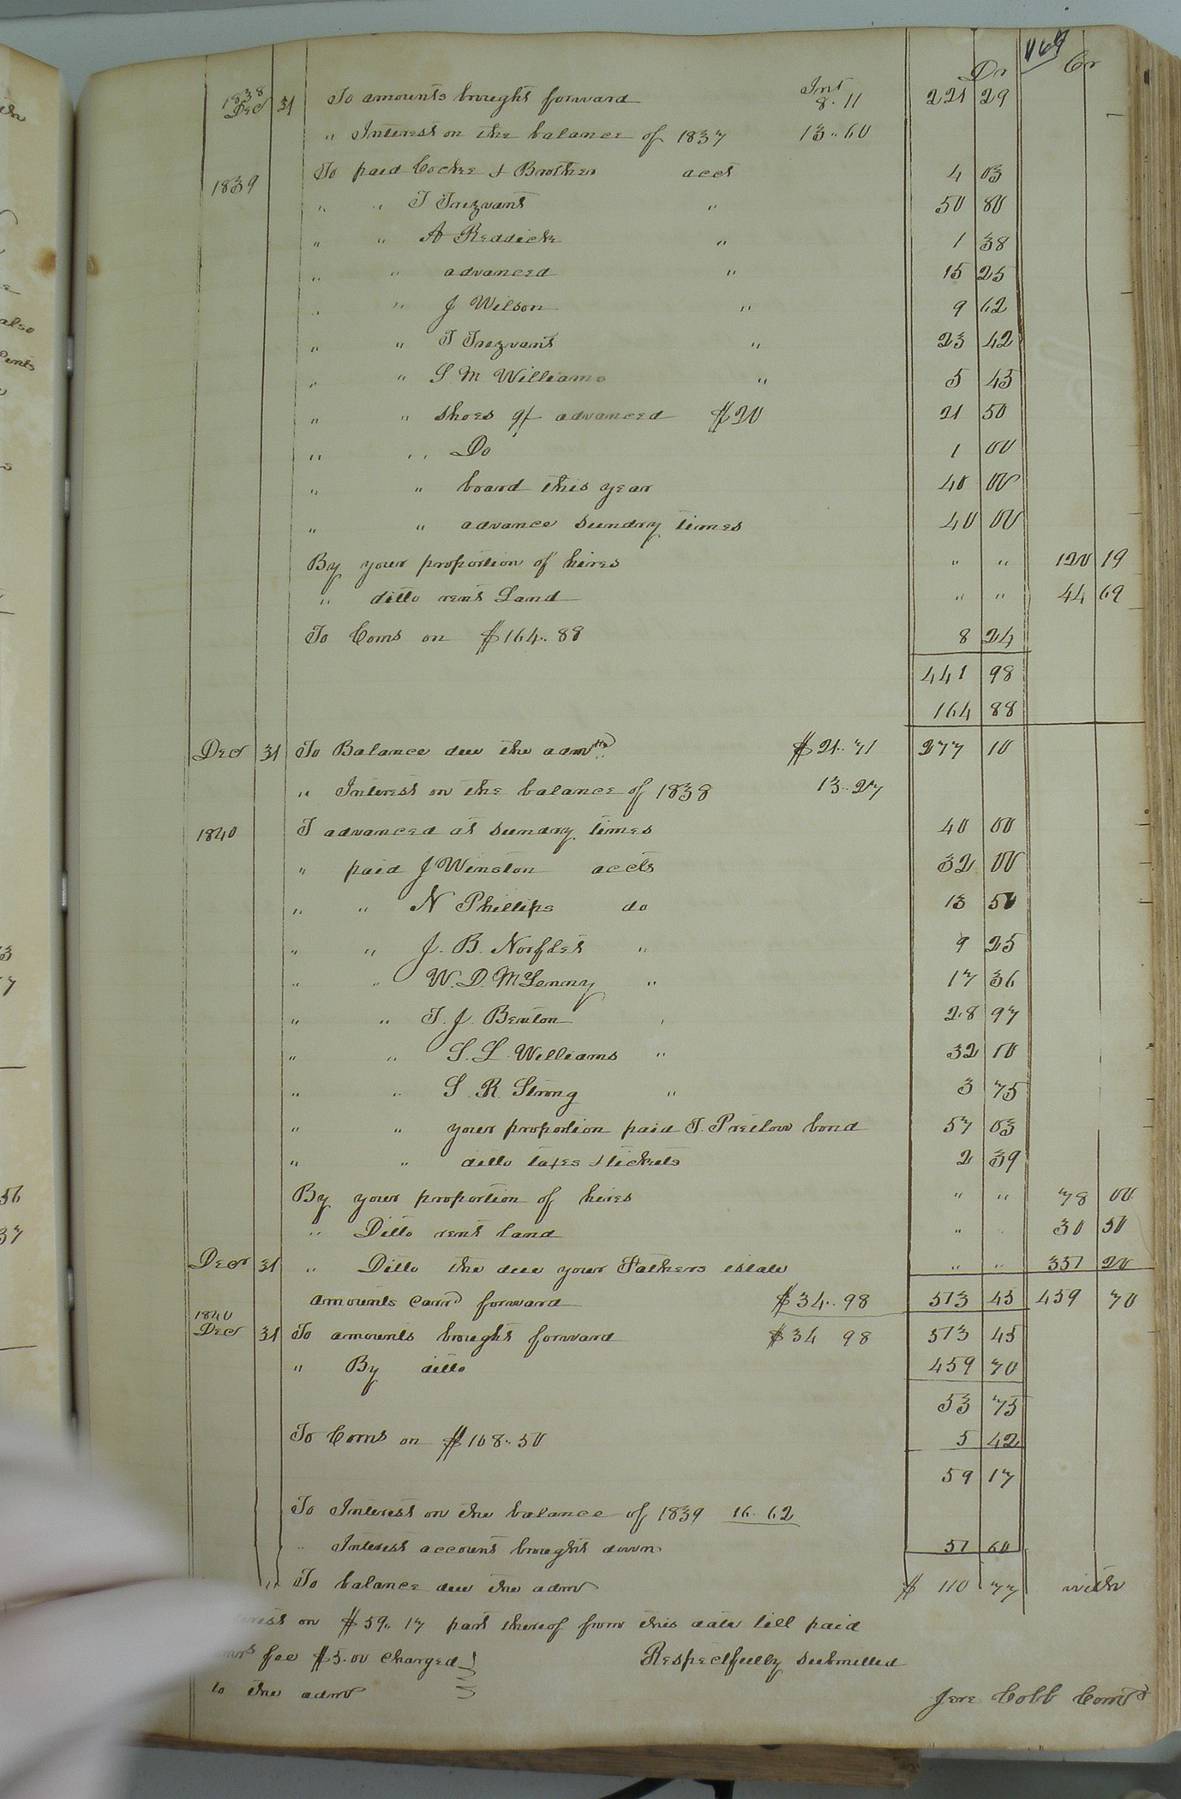 469
Dr Cr
1838 Int
Decr 31 To amounts brought forward 8.11 221 29
" Interest on the balance of 1837 13..60
1839 To paid Cocke & Brother acct 4 03
" " T Trezvant " 50 80
" " A Reddick " 1 38
" " advanced " 15 25
" " J Wilson " 9 62
" " T Trezvant " 23 42
" " S M Williams " 5 45
" " shoes qf advanced $20 21 50
" " Do 1 00
" " board this year 40 00
" " advance sundry times 40 00
By your proportion of hires " " 120 19
" ditto rent Land " " 44 69
To Coms on $164..88 8 24
441 98
164 88
Decr 31 To Balance due the admr $21..71 277 10
" Interest on the balance of 1838 13..27
1840 T advanced at sundry times 40 00
" paid J Winston accts 32 00
" " N Phillips do 13 50
" " J. B. Norflet " 9 25
" " W. D. McLenny " 17 36
" " T. J. Benton " 28 97
" " S. L. Williams " 32 10
" " S. R. Strong " 3 75
" " your proportion paid T. Pretlow bond 57 03
" " ditto taxes & tickets 2 39
By your proportion of hires " " 78 00
" Ditto rent land " " 30 50
Decr 31 " Ditto the due your Fathers estate " " 351 20
amounts carrd forward $34..98 513 45 459 70
1840
Decr 31 To amounts brought forward $34 98 513 45
" By ditto 459 70
53 75
To Coms on $108..50 5 42
59 17
To Interest on the balance of 1839 16..62
" Interest account brought down 51 60
" To balance due the admr $ 110 77 with
on $59..17 part thereof from this date till paid
fee $5.00 charged Respectfully submitted
to the admr
Jere Cobb Comr